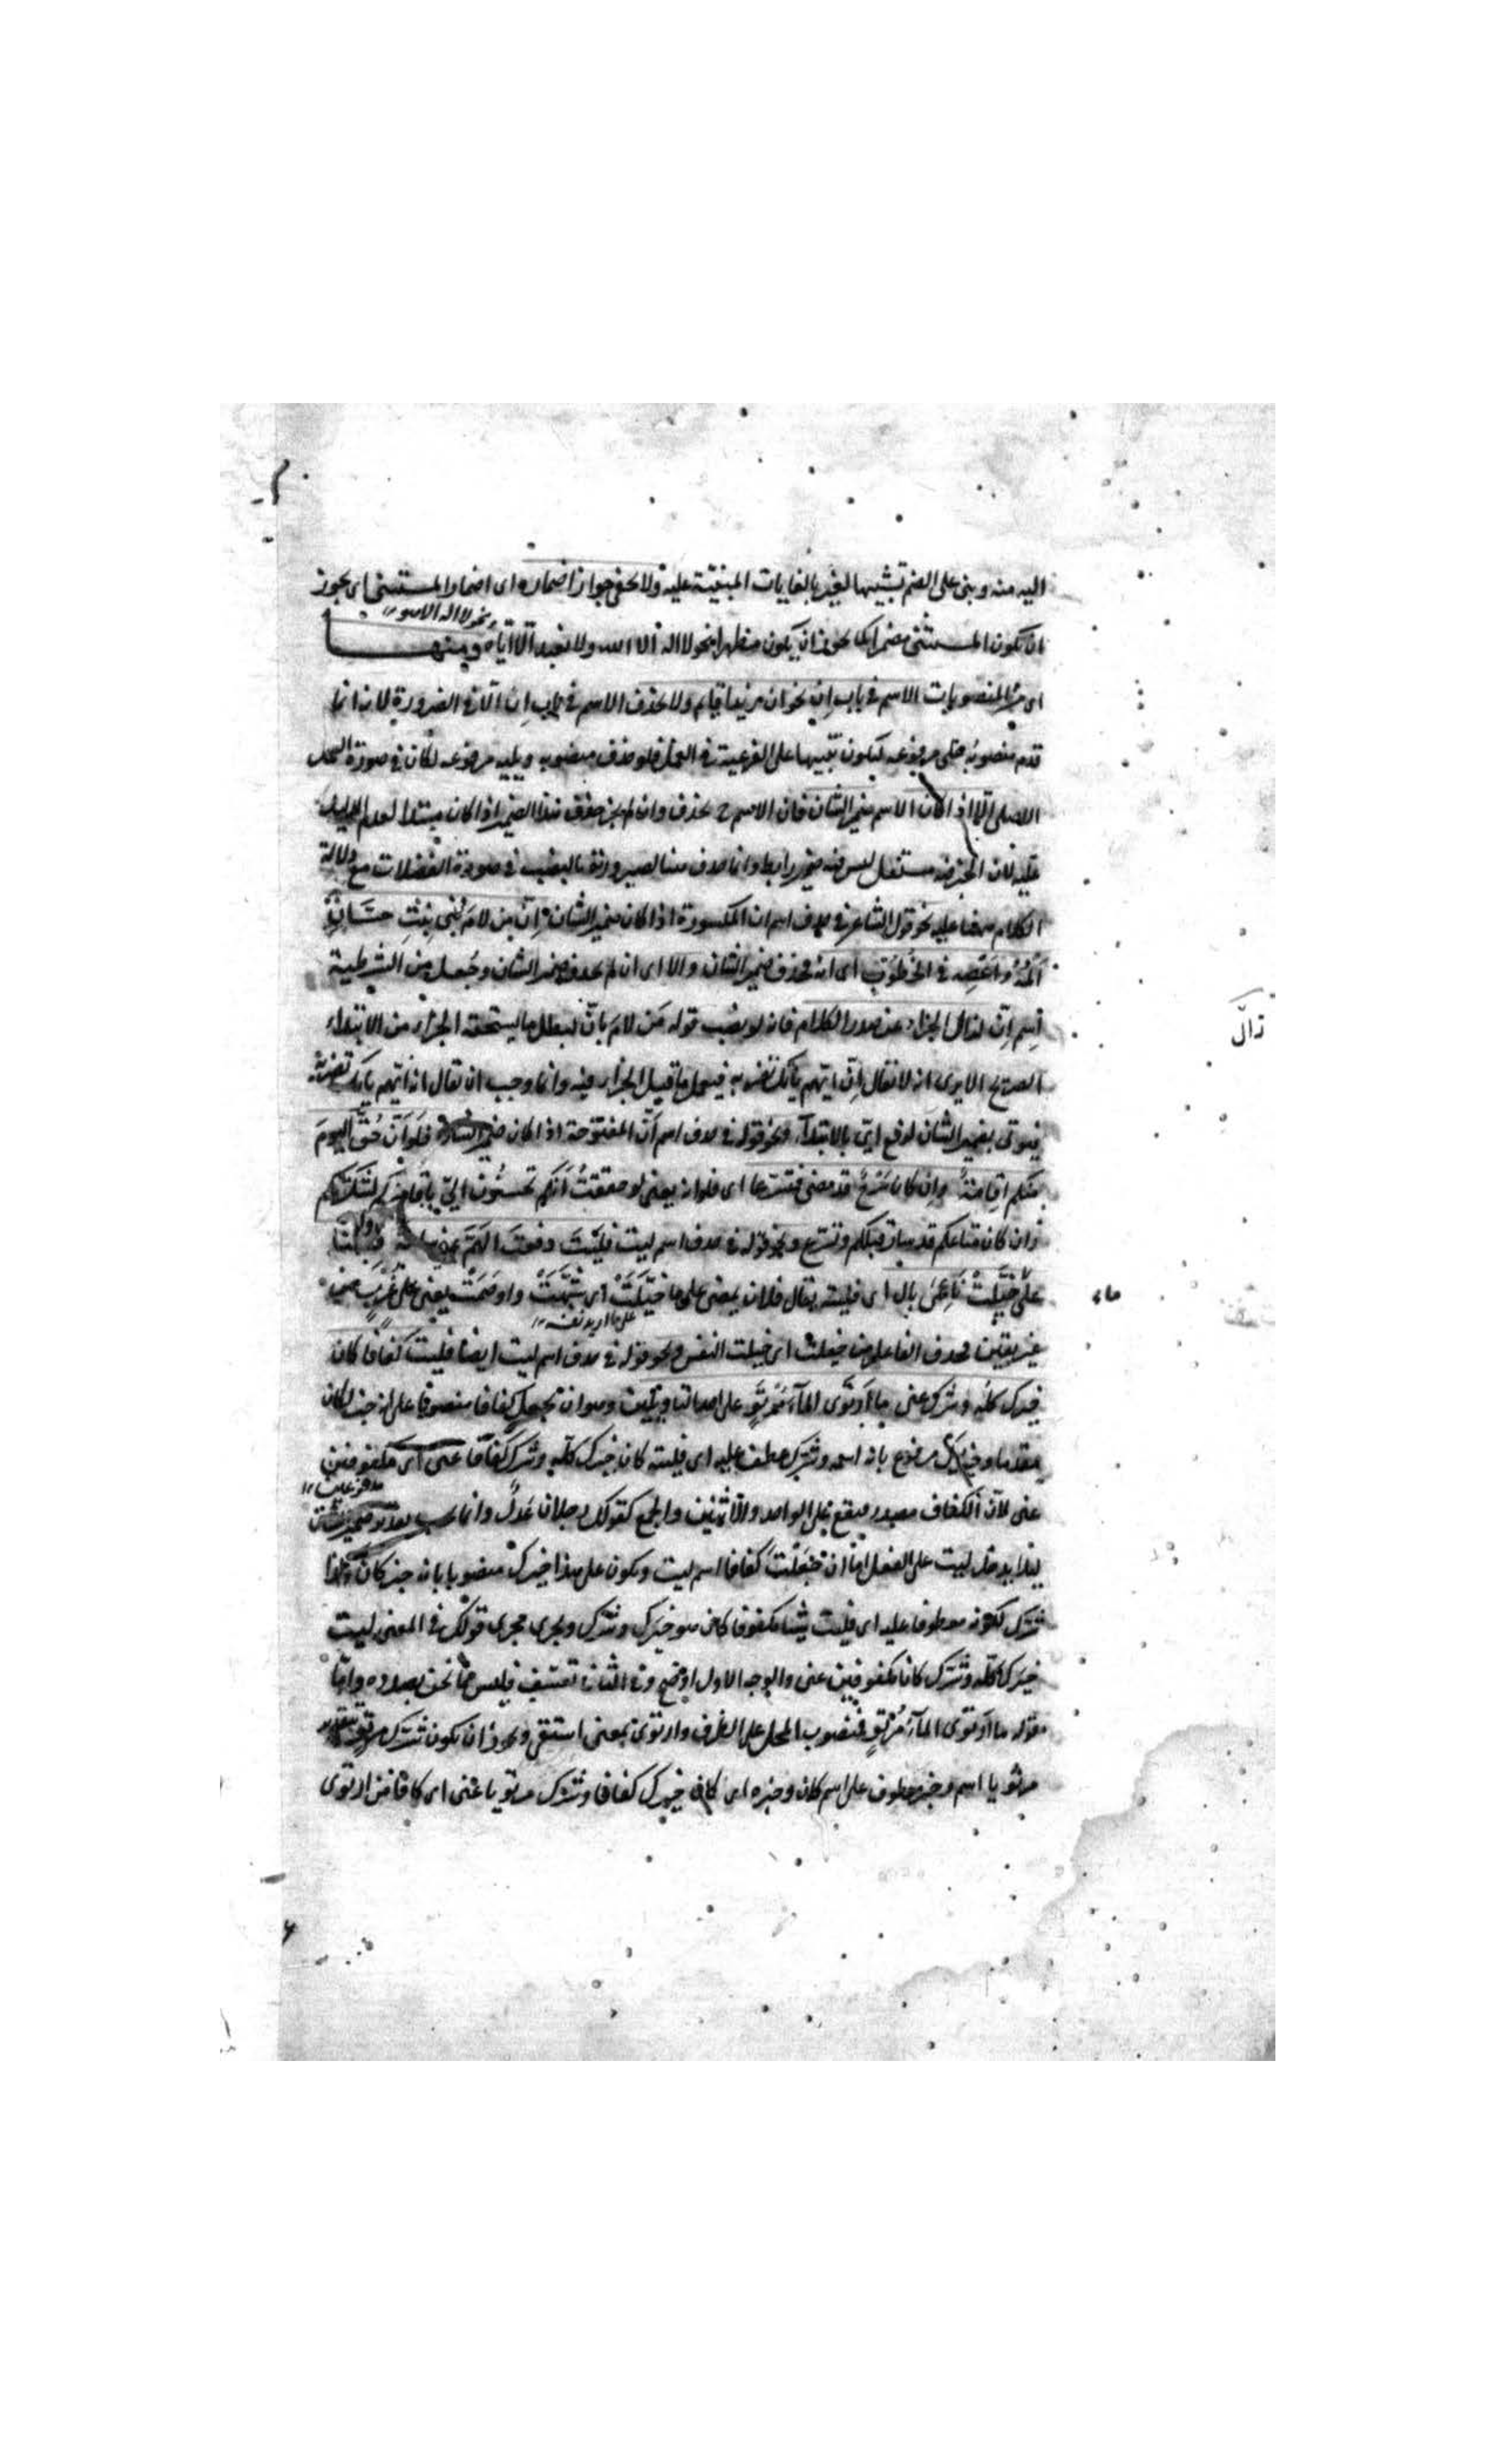 اليه منه وبنى على الضم تشبيها لغير بالغايات المبنية عليه ولا يخفى جواز اضماره اى اضمار المستثنى اى يجوز
ونحو لا اله الا هو
ان يكون المستثنى مضمرا كما يجوز ان يكون مظهرا نحو لا اله الا الله ولا نعبد الا اياه ومنها
اى من المنصوبات الاسم فى باب ان نحو ان زيدا قايم ولا يحذف الاسم فى باب ان الا فى الضرورة لانه انما
قدم منصوبه على مرفوعه ليكون تنبيها على الفرعية فى العمل فلو حذف منصوبه ويليه مرفوعه لكان فى صورة العمل
الاصلى الا اذا كان الاسم ضمير الشان فان الاسم ح يحذف وان لم يجز حذف هذا الضمير اذا كان مبتدا لعدم الدليل
عليه لان الخبر مستقل ليس فيه ضمير رابط وانما حذف هنا لصيرورته بالنصب فى صورة الفضلات مع دلالة
الكلام عليه نحو قول الشاعر فى حذف اسم ان المكسورة اذا كان ضمير الشان ان من لام فى بنى بنت حسان
المه واعصه فى الخطوب اى انه فحذف ضمير الشان والا اى ان لم يحذف ضمير الشان وجعل من الشرطية
اسم ان لزال الجزاء عن صدر الكلام فانه لو نصب قوله من لام بان لبطل ما يستحقه الجزاء من الابتداء
الصريح الا يرى انه لا تقال ان ايهم ياتك تضربه فيعمل ما قبل الجزاء فيه وانما وجب ان تقال انه ايهم ياتك تضربه
فيوتى بضمير الشان لرفع اى بالابتداء ونحو قوله فى حذف اسم ان المفتوحة اذا كان ضمير الشان فلو ان حق اليوم
منكم اقامة وان كان سرح قد مضى فتسرعا اى فلو انه يعنى لو حققت انكم تحسنون الى باقامتكم لشكرتكم
وان كان متاعكم قد سار قبلكم وتسرع ونحو قوله فى حذف اسم ليت فليت دفعت الهم عنى ساعة فبتنا
على ما خيلت ناعمى بال اى فليته يقال فلان يمضى على ما خيلت اى شبهت واوهمت يعنى على غرر من
على ما اريد نفسه
غير يقين فحذف الفاعل من خيلت اى خيلت النفس ونحو قوله فى حذف اسم ليت ايضا فليت كفافا كان
خيرك كله وشرك عنى ما ارتوى الماء مرتو على احتمال وهو ان تجعل كفافا منصوبا على انه خبر لكان
مقدما وخيرك مرفوع بانه اسمه وشرك عطف عليه اى فليته كان خيرك كله وشرك كفافا عنى اى مكفوفين
عنى لان الكفاف مصدر فيقع على الواحد والاثنين والجمع كقولك رجلان عدل وانما يجب تقدير ضمير الشان
ليلا يدخل ليت على الفعل اما ان جعلت كفافا اسم ليت ويكون على هذا خيرك منصوبا بانه خبر كان وكذا
شرك لكونه معطوفا عليه اى فليت شيئا مكفوفا كان هو خيرك وشرك ويجرى مجرى قولك فى المعنى ليت
خيرك كله وشرك كانا مكفوفين عنى والوجه الاول اوضح وفى الثانى تعسف فليس مما نحن بصدده واما
قوله ما ارتوى الماء مرتو فمنصوب المحل على الظرف وارتوى بمعنى استقى ويجوز ان يكون شرك مرتو بتقدير
مرتويا اسم وخبر معطوف على اسم كان وخبره اى كان خيرك كفافا وشرك مرتويا عنى اى كافا من ارتوى
زال
ماء